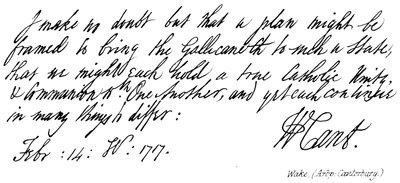 I make no doubt but that a plan might be
framed to bring the Gallican Ch to such a State,
that we might each hold, a true Catholic Unity,
& Communion wth One Another, and yet each continue
in many things to differ:
Febr: 14:
W Cant.
Wake, (Archp: Canterbury.)